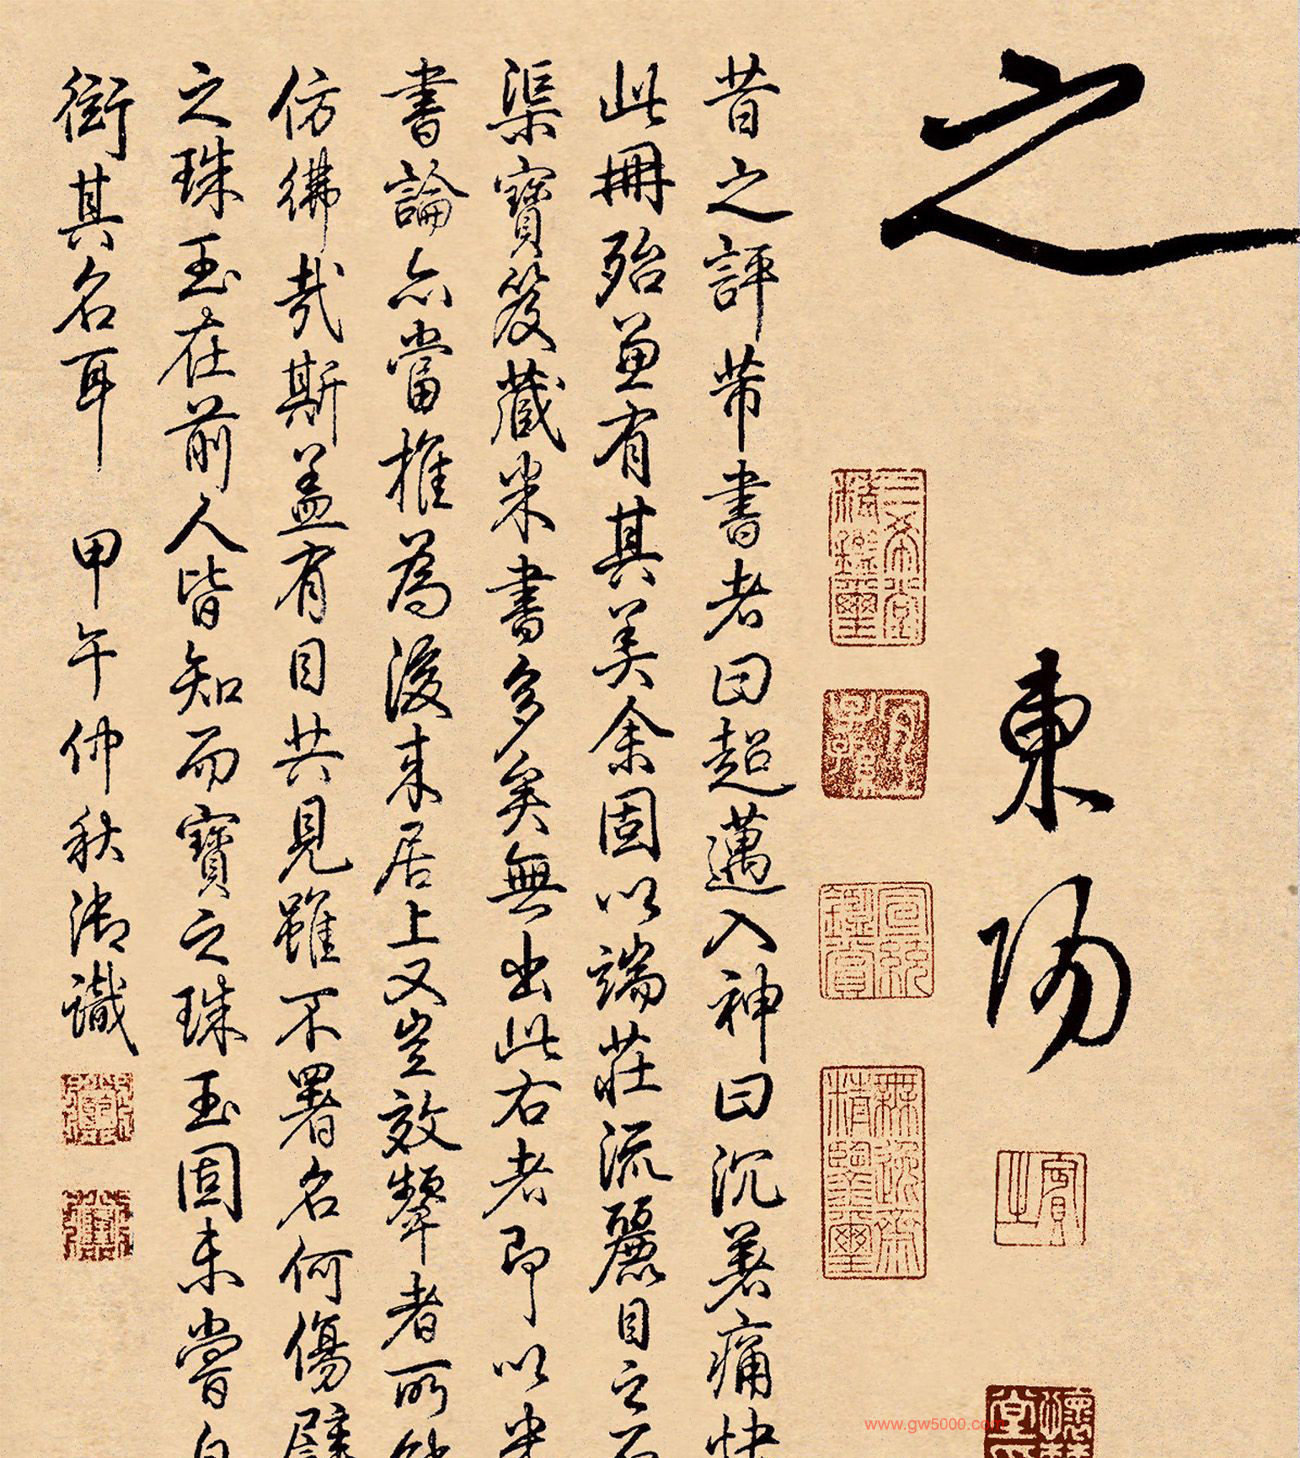 之
東陽
昔之評芾書者曰超邁入神曰沉著痛快
此冊殆兼有其美余固以端莊流麗目之石
渠寶笈藏米書多矣無出此右者即以米
書論亦當推為後來居上又豈效顰者所能
仿彿哉斯蓋有目共見雖不署名何傷譬
之珠玉在前人皆知而寶之珠玉固未嘗自
衒其名耳 甲午仲秋御識
三希堂精鑑璽
宜子孫
宣統鑑賞
無逸齋精鑒璽
寶
www.gw5000.com